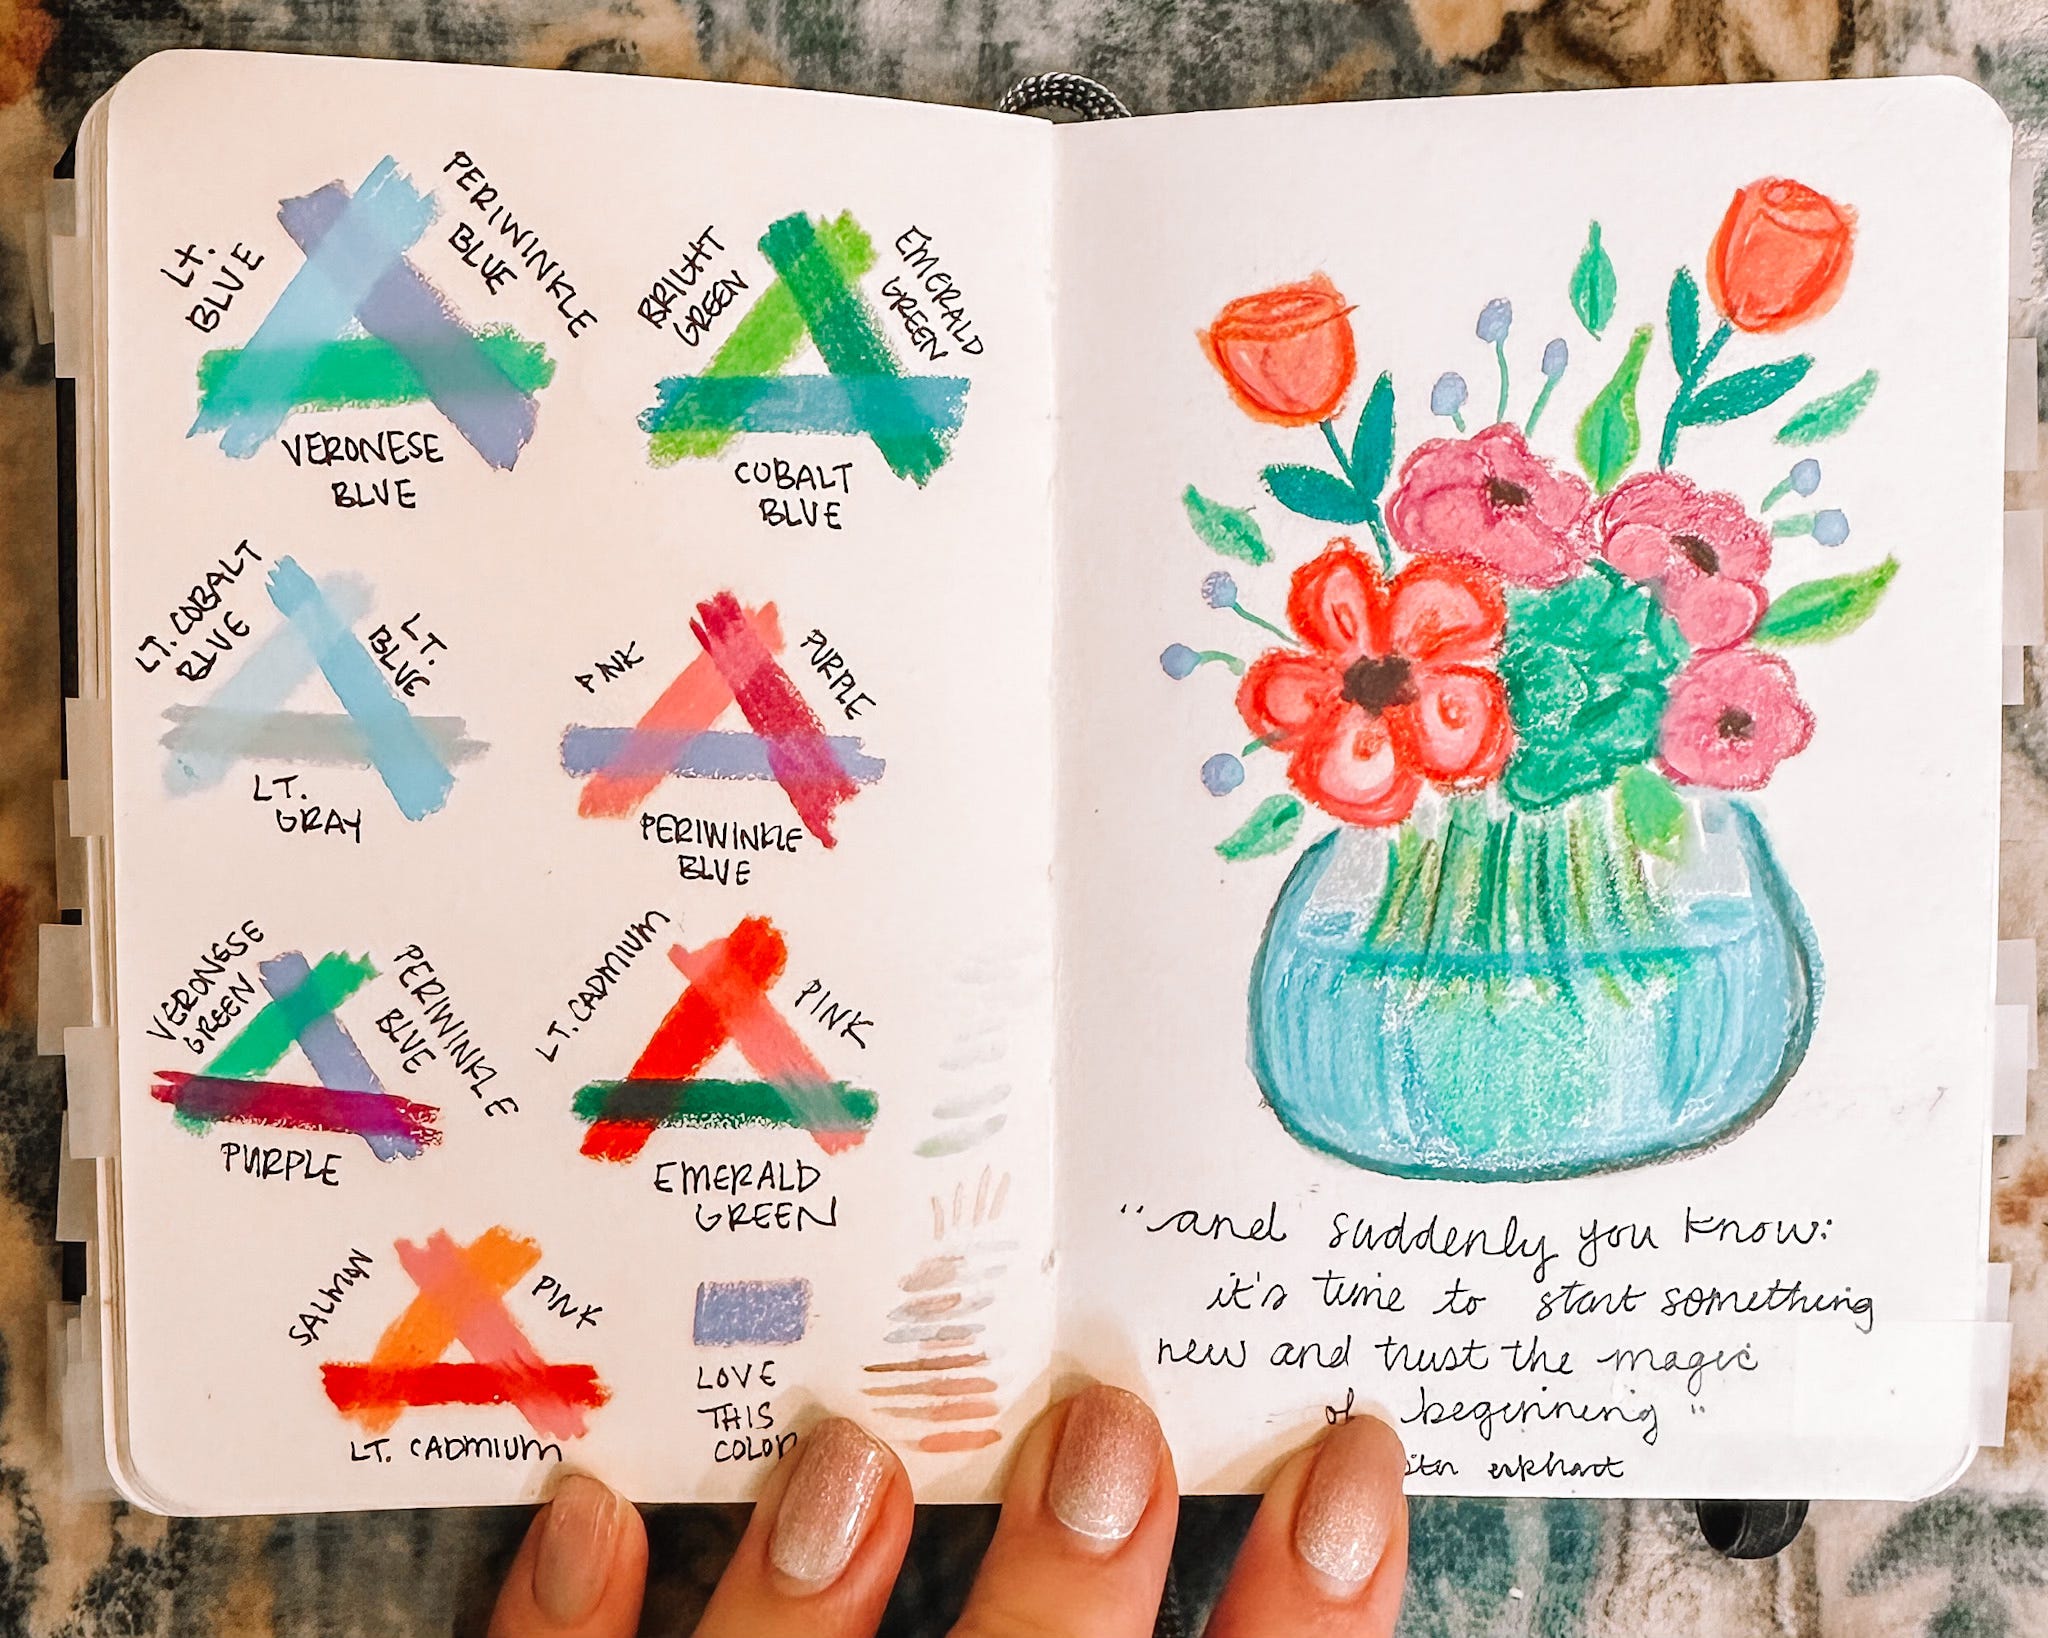 LT.
BLUE
PERIWINKLE
BLUE
VERONESE
BLUE
BRIGHT
GREEN
EMERALD
GREEN
COBALT
BLUE
LT. COBALT
BLUE
LT.
BLUE
LT.
GRAY
PINK
PURPLE
PERIWINKLE
BLUE
VERONESE
GREEN
PERIWINKLE
BLUE
PURPLE
LT. CADMIUM
PINK
EMERALD
GREEN
SALMON
PINK
LT. CADMIUM
LOVE
THIS
COLOR
"and suddenly you know:
it's time to start something
new and trust the magic
of beginning"
eckhart